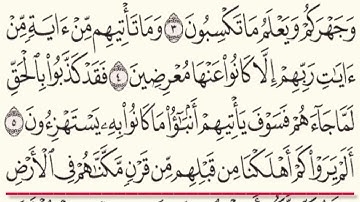 وَجَهۡرَكُمۡ وَيَعۡلَمُ مَا تَكۡسِبُونَ ٣ وَمَا تَأۡتِيهِم مِّنۡ ءَايَةٖ مِّنۡ
ءَايَٰتِ رَبِّهِمۡ إِلَّا كَانُواْ عَنۡهَا مُعۡرِضِينَ ٤ فَقَدۡ كَذَّبُواْ بِٱلۡحَقِّ
لَمَّا جَآءَهُمۡ فَسَوۡفَ يَأۡتِيهِمۡ أَنۢبَٰٓؤُاْ مَا كَانُواْ بِهِۦ يَسۡتَهۡزِءُونَ
٥ أَلَمۡ يَرَوۡاْ كَمۡ أَهۡلَكۡنَا مِن قَبۡلِهِم مِّن قَرۡنٖ مَّكَّنَّٰهُمۡ فِي ٱلۡأَرۡضِ